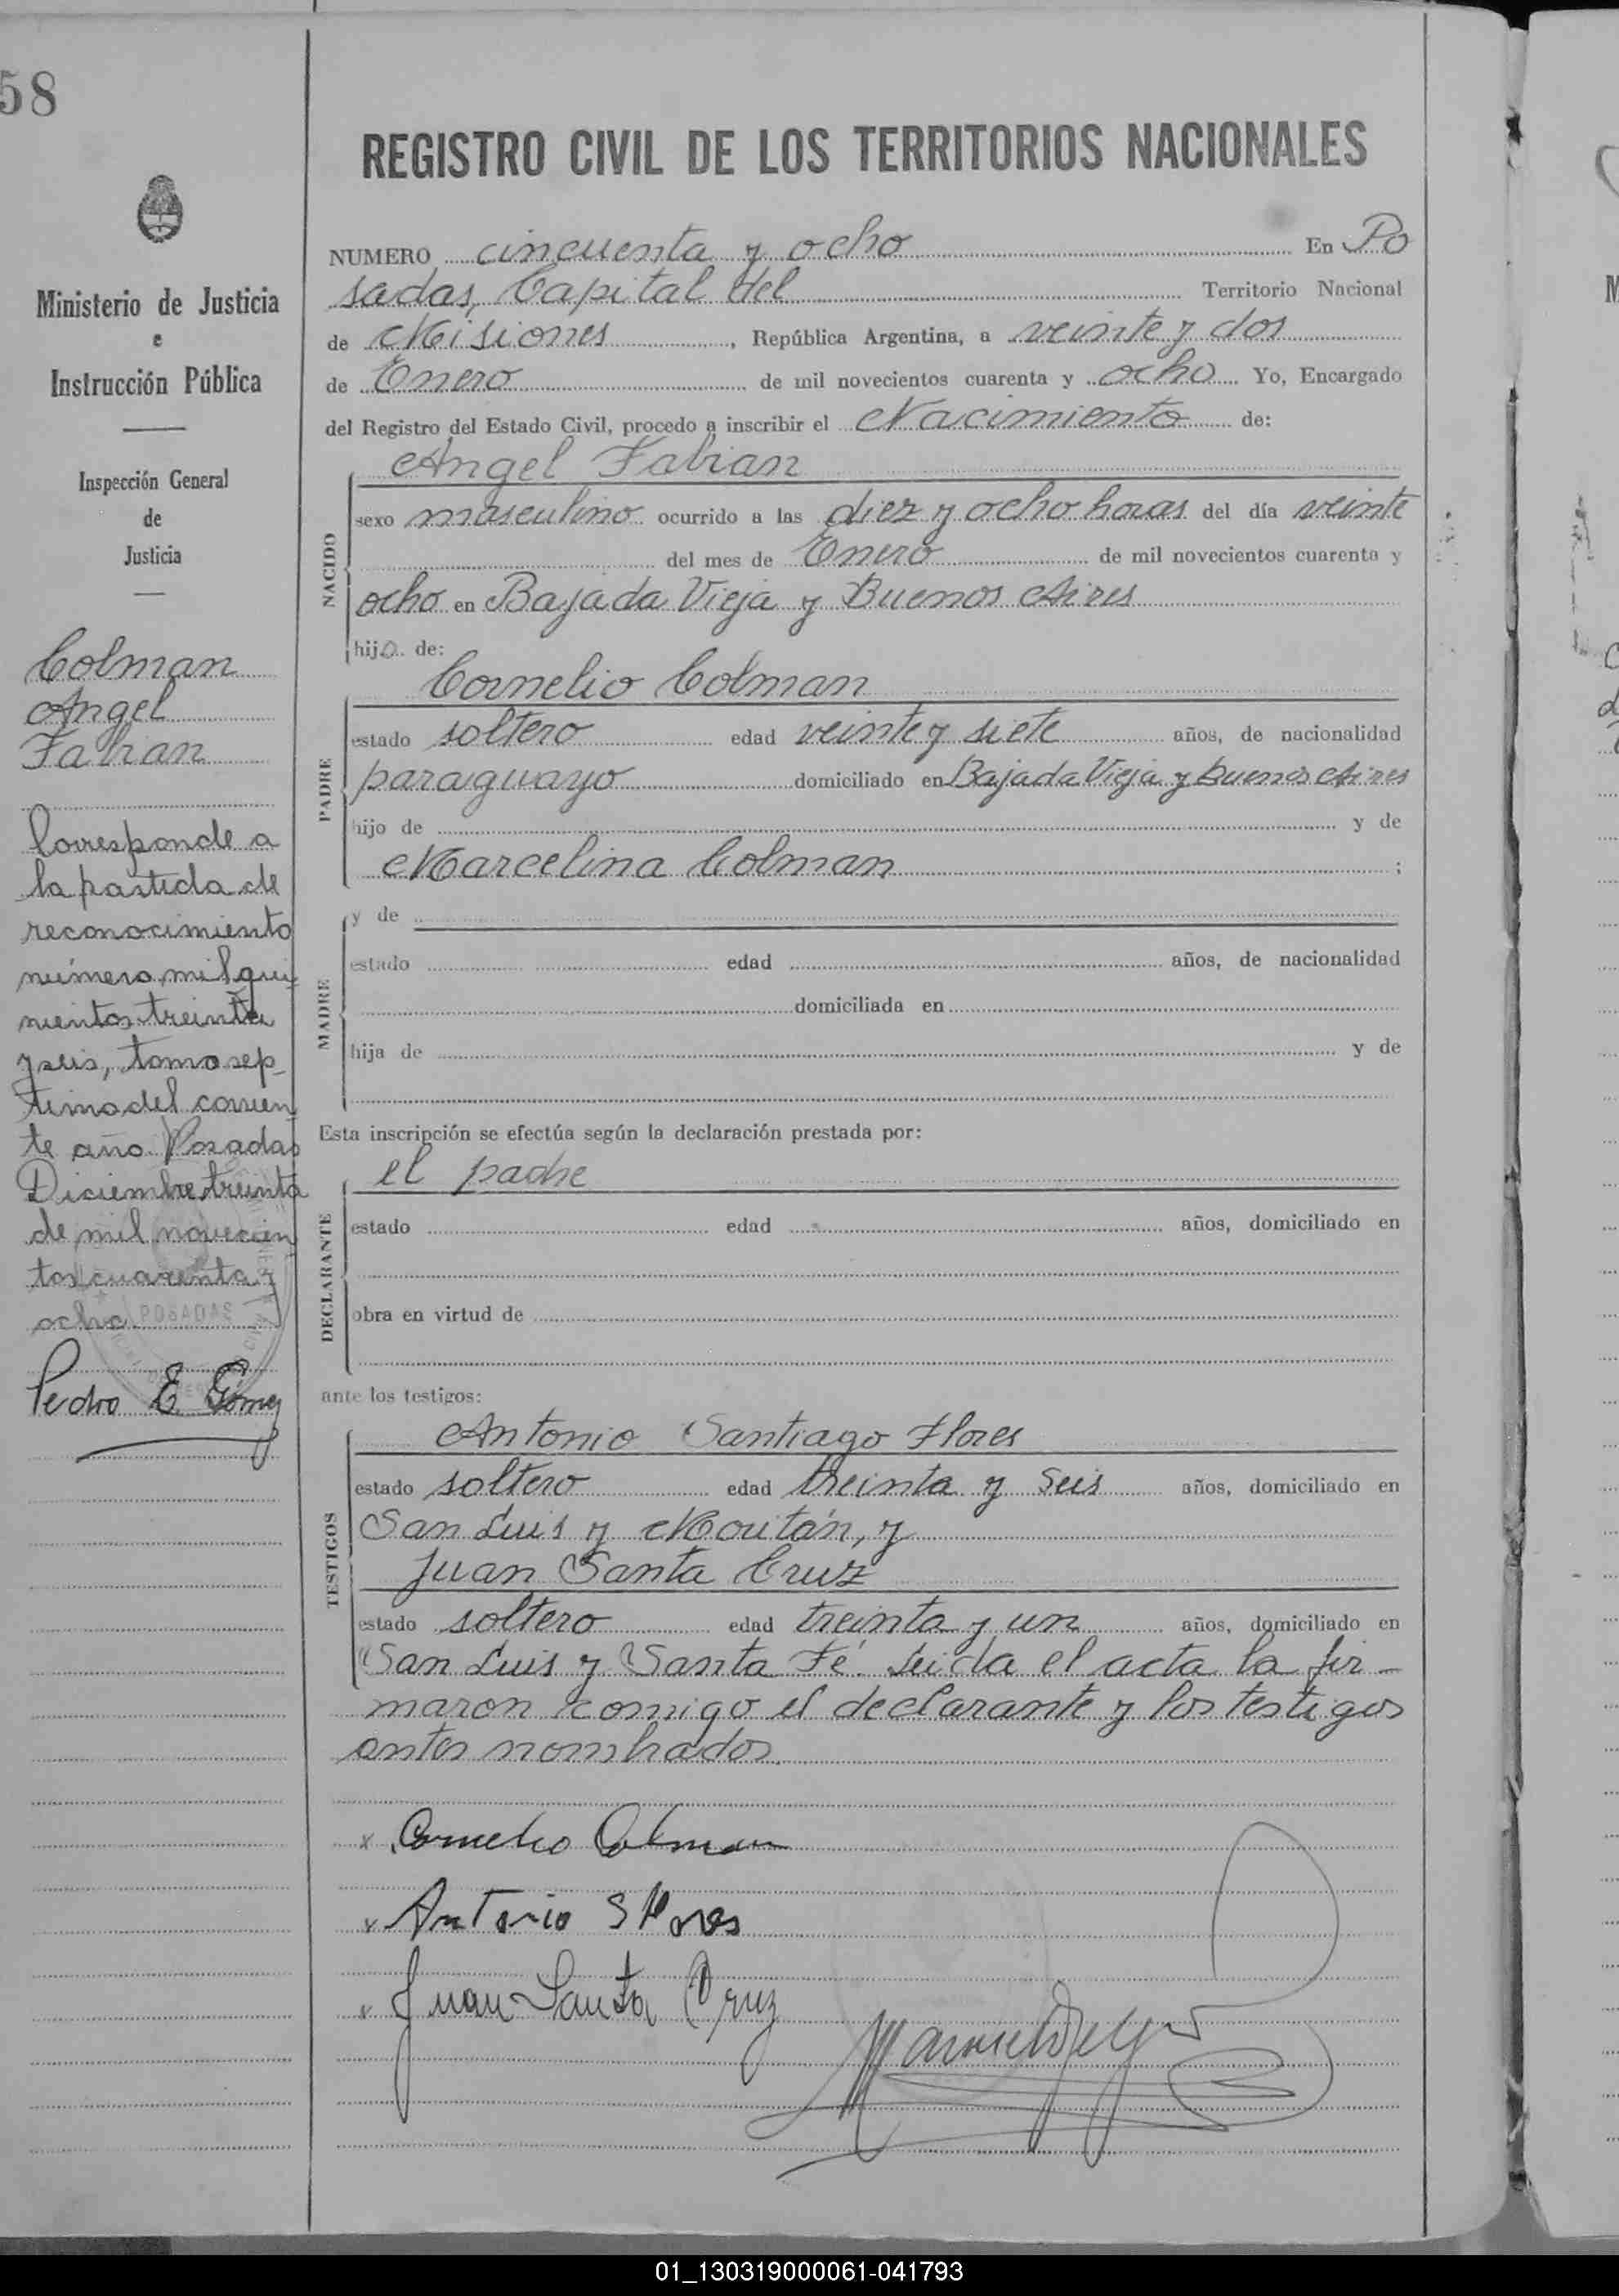 58
Ministerio de Justicia
e
Instrucción Pública
Inspección General
de
Justicia
Colman
Angel
Fabian
Corresponde a
la partida de
reconocimiento
número mil qui
nientos treinta
y seis, tomo sep-
timo del corrien
te año. Posadas
Diciembre treinta
de mil novecien
tos cuarenta y
ocho
POSADAS
Pedro E. Gómez
REGISTRO CIVIL DE LOS TERRITORIOS NACIONALES
NUMERO cincuenta y ocho En Po
sadas, Capital del Territorio Nacional
de Misiones, República Argentina, a veinte y dos
de Enero de mil novecientos cuarenta y ocho Yo, Encargado
del Registro del Estado Civil, procedo a inscribir el Nacimiento de:
Angel Fabian
NACIDO
sexo masculino ocurrido a las diez y ocho horas del día veinte
del mes de Enero de mil novecientos cuarenta y
ocho en Bajada Vieja y Buenos Aires
hijo de:
Cornelio Colman
PADRE
estado soltero edad veinte y siete años, de nacionalidad
paraguayo domiciliado en Bajada Vieja y Buenos Aires
hijo de y de
Marcelina Colman ;
MADRE
y de
estado edad años, de nacionalidad
domiciliada en
hija de y de
Esta inscripción se efectúa según la declaración prestada por:
el padre
DECLARANTE
estado edad años, domiciliado en
obra en virtud de
ante los testigos:
Antonio Santiago Flores
TESTIGOS
estado soltero edad treinta y seis años, domiciliado en
San Luis y Moritán, y
Juan Santa Cruz
estado soltero edad treinta y un años, domiciliado en
San Luis y Santa Fé. Leida el acta la fir-
maron comigo el declarante y los testigos
antes nombrados.
x Cornelio Colman
x Antonio S Flores
x Juan Santa Cruz
01_130319000061-041793